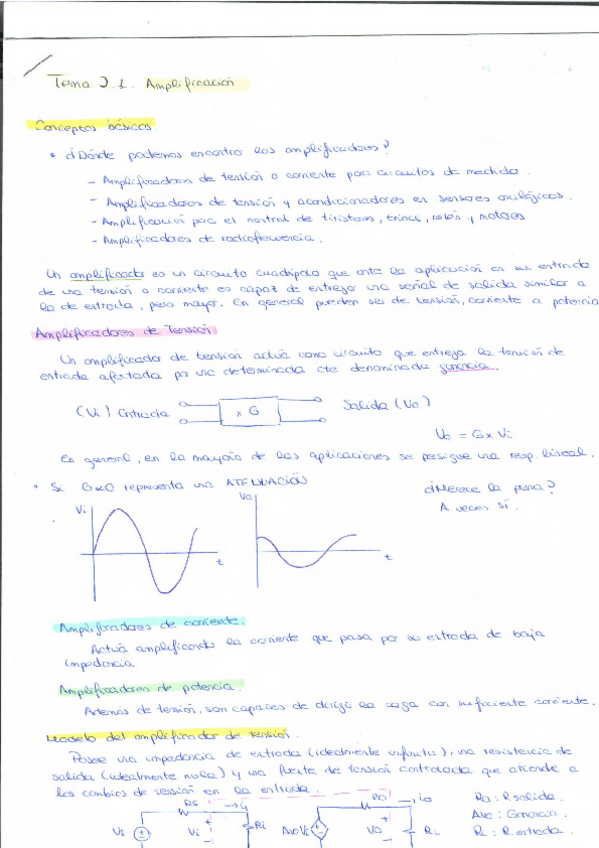 Tema 2.1. Amplificación
Conceptos básicos
• ¿Dónde podemos encontrar los amplificadores?
- Amplificadores de tensión o corriente para circuitos de medida.
- Amplificadores de tensión y acondicionadores en sensores analógicos.
- Amplificación para el control de tiristores, triacs, relés y motores
- Amplificadores de radiofrecuencia.
Un amplificador es un circuito cuadripolo que ante la aplicación en su entrada
de una tensión o corriente es capaz de entregar una señal de salida similar a
la de entrada, pero mayor. En general pueden ser de tensión, corriente o potencia
Amplificadores de Tensión
Un amplificador de tensión actúa como circuito que entrega la tensión de
entrada afectada por una determinada cte denominada ganancia.
(Vi) Entrada x G Salida (Vo)
Vo = G x Vi
En general, en la mayoría de las aplicaciones se persigue una resp. lineal.
• Si G<0 representa una ATENUACIÓN ¿Merece la pena?
A veces sí.
Vi t Vo t
Amplificadores de corriente.
Actúa amplificando la corriente que pasa por su entrada de baja
impedancia.
Amplificadores de potencia.
Además de tensión, son capaces de dirigir la carga con suficiente corriente.
Modelo del amplificador de tensión.
Posee una impedancia de entrada (idealmente infinita), una resistencia de
salida (idealmente nula) y una fuente de tensión controlada que atiende a
los cambios de tensión en la entrada.
Rs ii Ro io Ro: R. salida.
Vs Vi Ri AvoVi Vo RL Avo: Ganancia.
Ri: R. entrada.